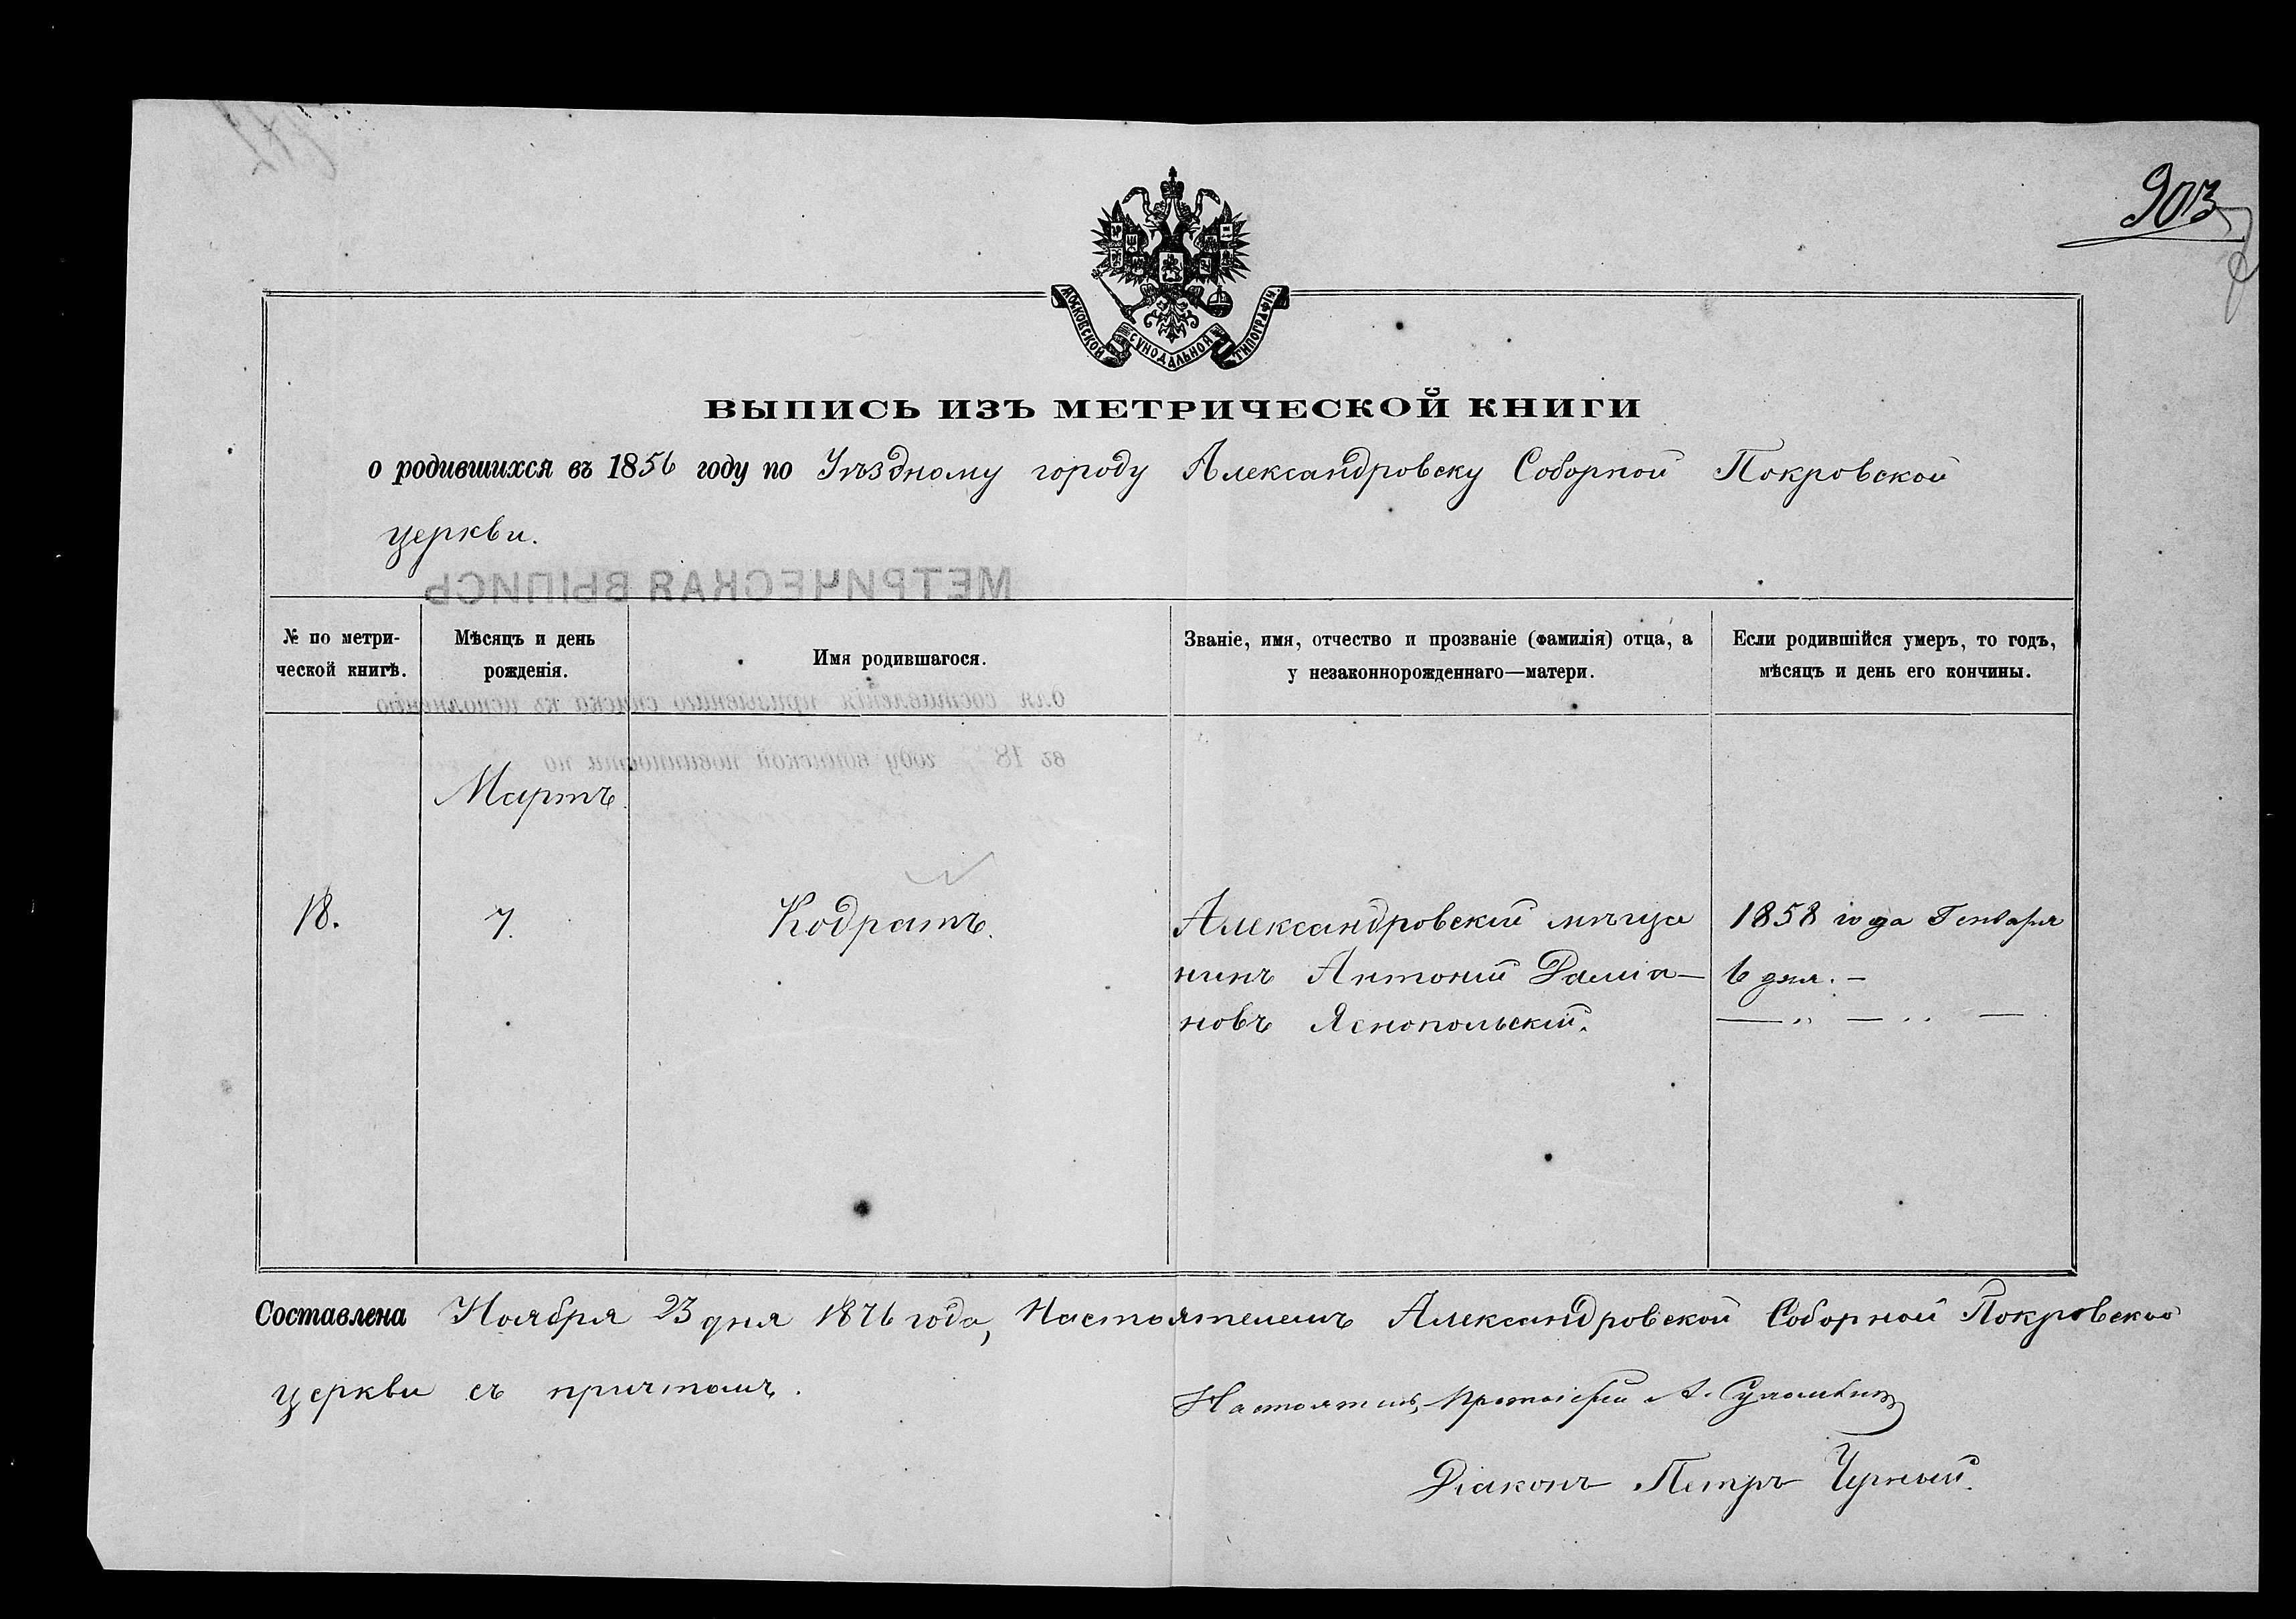 903
МОСКОВСКОЙ СУНОДАЛЬНОЙ ТИПОГРАФІИ.
ВЫПИСЬ ИЗЪ МЕТРИЧЕСКОЙ КНИГИ
о родившихся въ 1856 году по Уѣздному городу Александровску Соборной Покровской
церкви.
МЕТРИЧЕСКАЯ ВЫПИСЬ
№ по метри-
ческой книгѣ.
Мѣсяцъ и день
рожденія.
Имя родившагося.
Званіе, имя, отчество и прозваніе (фамилія) отца, а
у незаконнорожденнаго—матери.
Если родившійся умеръ, то годъ,
мѣсяцъ и день его кончины.
для составленія призывнаго списка къ исполненію
въ 18 году воинской повинности по
Мартъ
18.
7.
Кодратъ.
Александровскій мѣща
нинъ Антоній Даміа—
новъ Яснопольскій.
1858 года Генваря
6 дня. —
Составлена Ноября 23 дня 1876 года, Настоятелемъ Александровской Соборной Покровской
церкви съ причтомъ.
Настоятель, Протоіерей А.
Діаконъ Петръ Чорный.